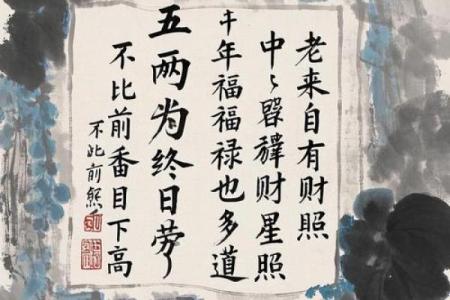 老来自有财照
中财星照
年福福禄也多道
五两为终日劳
不比前番目下高
不此前